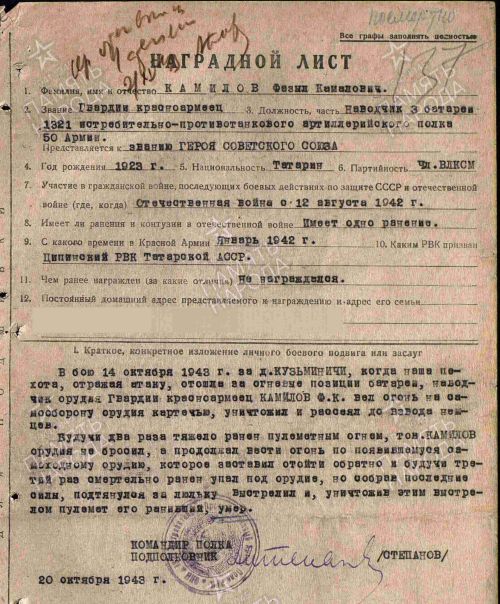 посмертно
Все графы заполнять полностью
НАГРАДНОЙ ЛИСТ
1. Фамилия, имя и отчество КАМИЛОВ Фазил Камалович.
2. Звание Гвардии красноармеец 3. Должность, часть Наводчик 3 батареи
1321 истребительно-противотанкового артиллерийского полка
50 Армии.
Представляется к званию ГЕРОЯ СОВЕТСКОГО СОЮЗА
4. Год рождения 1923 г. 5. Национальность Татарин 6. Партийность Чл.ВЛКСМ
7. Участие в гражданской войне, последующих боевых действиях по защите СССР и отечественной
войне (где, когда) Отечественная война с 12 августа 1942 г.
8. Имеет ли ранения и контузии в отечественной войне Имеет одно ранение.
9. С какого времени в Красной Армии Январь 1942 г. 10. Каким РВК призван
Ципинский РВК Татарской АССР.
11. Чем ранее награжден (за какие отличия) не награждался.
12. Постоянный домашний адрес представляемого к награждению и адрес его семьи
I. Краткое, конкретное изложение личного боевого подвига или заслуг
В бою 14 октября 1943 г. за д.КУЗЬМИНИЧИ, когда наша пе-
хота, отражая атаку, отошла за огневые позиции батареи, навод-
чик орудия Гвардии красноармеец КАМИЛОВ Ф.К. вел огонь на са-
мооборону орудия картечью, уничтожил и рассеял до взвода нем-
цев.
Будучи два раза тяжело ранен пулеметным огнем, тов.КАМИЛОВ
орудия не бросил, а продолжал вести огонь по появившемуся са-
моходному орудию, которое заставил отойти обратно и будучи тре-
тий раз смертельно ранен упал под орудие, но собрав последние
силы, подтянулся за люльку выстрелил и, уничтожив этим выстре-
лом пулемет его ранивший, умер.
КОМАНДИР ПОЛКА
ПОДПОЛКОВНИК /СТЕПАНОВ/
20 октября 1943 г.